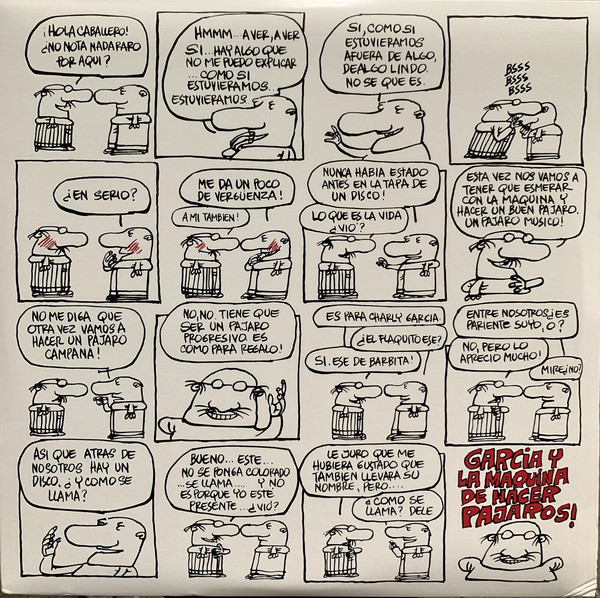 ¡HOLA CABALLERO!
¿NO NOTA NADA RARO
POR AQUI?
HMMM... A VER, A VER
SI... HAY ALGO QUE
NO ME PUEDO EXPLICAR
...COMO SI
ESTUVIERAMOS...
ESTUVIERAMOS...
SI, COMO SI
ESTUVIERAMOS
AFUERA DE ALGO,
DE ALGO LINDO.
NO SE QUE ES.
BSSS
BSSS
BSSS
¿EN SERIO?
ME DA UN POCO
DE VERGÜENZA!
A MI TAMBIEN!
NUNCA HABIA ESTADO
ANTES EN LA TAPA DE
UN DISCO!
LO QUE ES LA VIDA
¿VIÓ?
ESTA VEZ NOS VAMOS A
TENER QUE ESMERAR
CON LA MAQUINA Y
HACER UN BUEN PAJARO.
UN PAJARO MUSICO!
NO ME DIGA QUE
OTRA VEZ VAMOS A
HACER UN PAJARO
CAMPANA!
NO, NO. TIENE QUE
SER UN PAJARO
PROGRESIVO. ES
COMO PARA REGALO!
ES PARA CHARLY GARCIA.
¿EL FLAQUITO ESE?
SI. ESE DE BARBITA!
ENTRE NOSOTROS ¿ES
PARIENTE SUYO, O?
NO, PERO LO
APRECIO MUCHO!
MIRE ¿NO?
ASI QUE ATRAS DE
NOSOTROS HAY UN
DISCO. ¿Y COMO SE
LLAMA?
BUENO... ESTE...
NO SE PONGA COLORADO
...SE LLAMA.... Y NO
ES PORQUE YO ESTE
PRESENTE... ¿VIÓ?
LE JURO QUE ME
HUBIERA GUSTADO QUE
TAMBIEN LLEVARA SU
NOMBRE, PERO....
¿COMO SE
LLAMA? DELE
GARCIA Y
LA MAQUINA
DE HACER
PAJAROS!